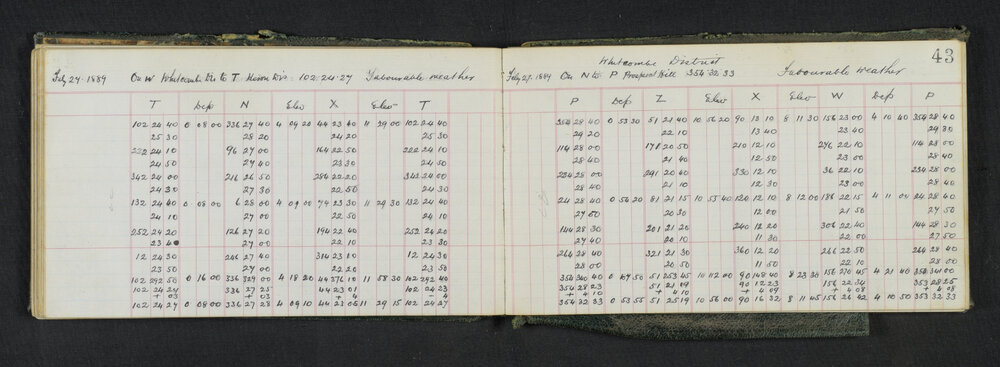 43
Feby 27. 1889 On W Whitcombe Div to T. Nixon Div: 102.24.27 Favourable weather
T Dep N Elev X Elev T
102 24 40 0 08 00 336 27 40 4 09 20 44 23 40 11 29 00 102 24 40
25 30 28 20 24 20 25 30
222 24 10 96 27 00 164 22 50 222 24 10
24 50 27 40 23 30 24 50
342 24 00 216 26 50 284 22 20 342 24 00
24 30 27 30 22 50 24 30
132 24 40 0 08 00 6 28 00 4 09 00 74 23 30 11 29 30 132 24 40
24 10 27 00 22 50 24 10
252 24 20 126 27 20 194 22 40 252 24 20
23 40 27 00 22 10 23 30
12 24 30 246 27 40 314 23 10 12 24 30
23 50 27 00 22 20 23 50
102 292 50 0 16 00 336 329 00 4 18 20 44 276 10 11 58 30 102 292 40
102 24 24 336 27 25 44 23 01 102 24 23
+ 03 + 03 + 4 - 4
102 24 27 0 08 00 336 27 28 4 09 10 44 23 05 11 29 15 102 24 27
Whitcombe District
Feby 27. 1889 On N to P Prospect Hill 354 32 33 Favourable weather
P Dep Z Elev X Elev W Dep P
354 28 40 0 53 30 51 21 40 10 56 20 90 13 10 8 11 30 156 23 00 4 10 40 354 28 40
29 20 22 10 13 40 23 40 29 30
114 28 00 171 20 50 210 12 10 276 22 10 114 28 00
28 40 21 40 12 50 23 00 28 40
234 28 00 291 20 40 330 12 10 36 22 10 234 28 00
28 40 21 10 12 30 23 00 28 40
24 28 40 0 54 20 81 21 15 10 55 40 120 12 10 8 12 00 188 22 15 4 11 00 24 28 40
27 00 20 30 12 00 21 50 27 50
144 28 30 201 21 20 240 12 20 306 22 40 144 28 30
27 40 20 10 11 30 22 00 27 50
264 28 40 321 21 30 360 12 20 266 22 50 264 28 40
28 00 20 50 11 50 22 10 28 00
354 340 40 0 107 50 51 253 45 10 112 00 90 148 40 8 23 30 156 270 45 4 21 40 354 341 00
354 28 23 51 21 09 90 12 23 156 22 34 353 28 25
+ 4 10 + 4 10 + 4 09 + 4 08 + 4 08
354 32 33 0 53 55 51 25 19 10 56 00 90 16 32 8 11 45 156 26 42 4 10 50 353 32 33